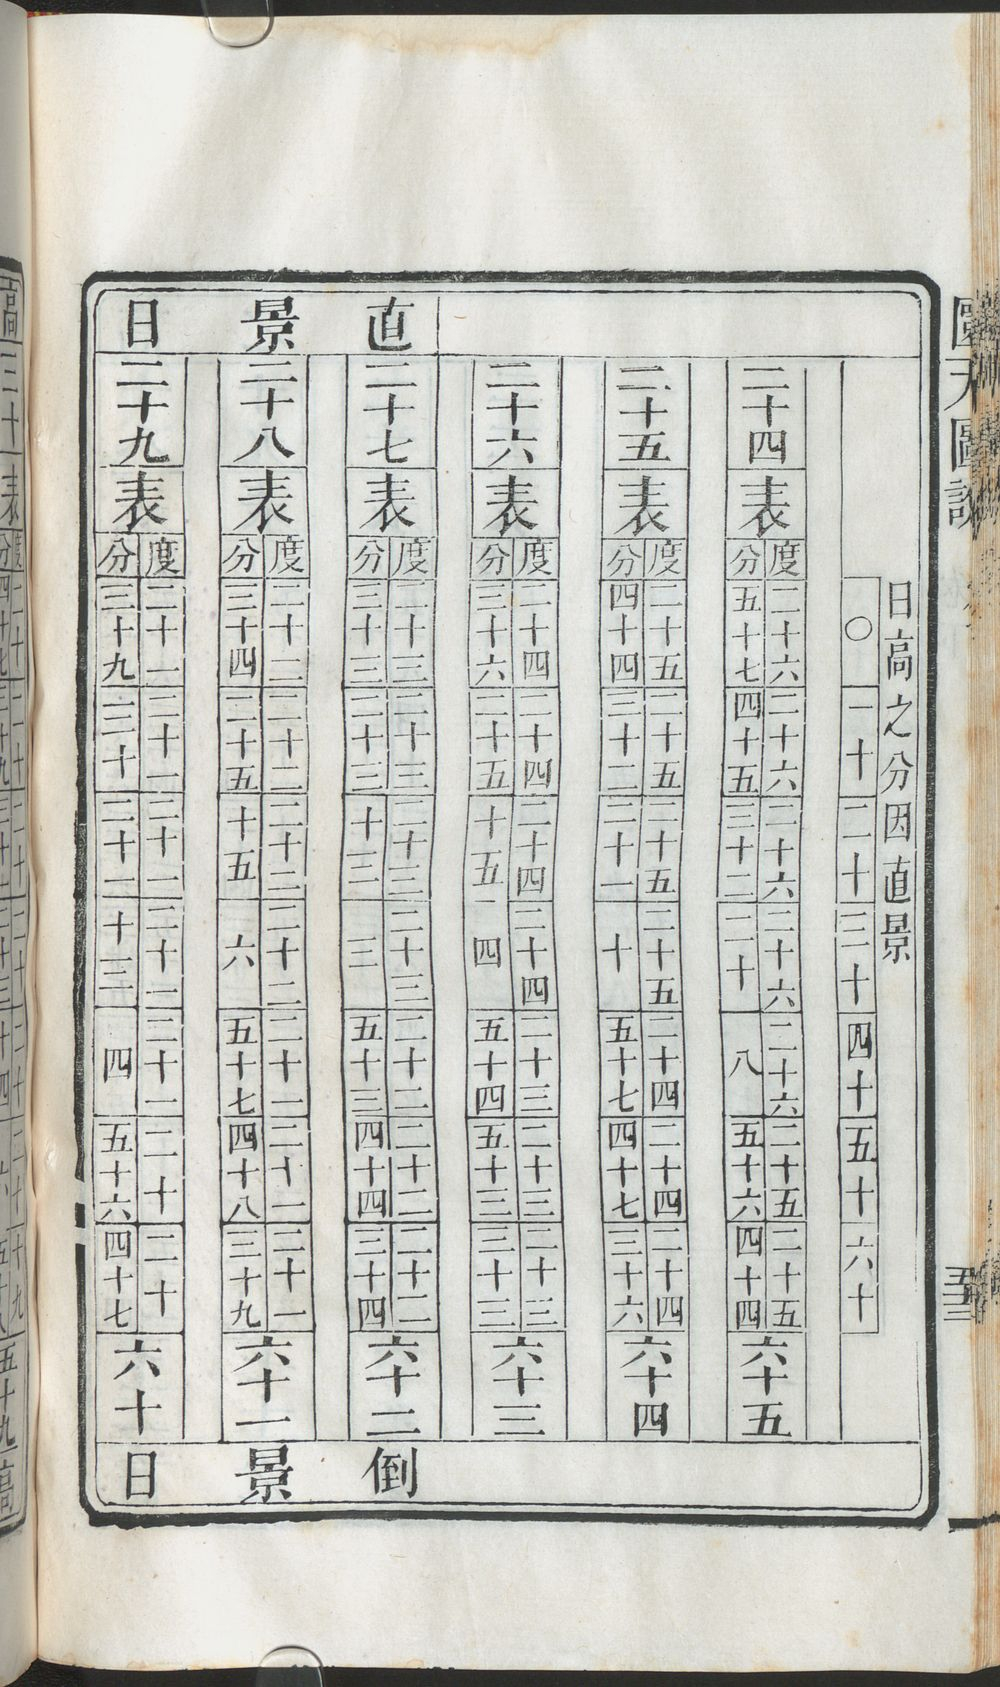 圜天圖說
日高之分因直景
〇 一十 二十 三十 四十 五十 六十
二十四 表
度 二十六 二十六 二十六 二十六 二十六 二十五 二十五
分 五十七 四十五 三十二 二十 八 五十六 四十四
六十五
二十五 表
度 二十五 二十五 二十五 二十五 二十四 二十四 二十四
分 四十四 三十二 二十一 十 五十七 四十七 三十六
六十四
二十六 表
度 二十四 二十四 二十四 二十四 二十三 二十三 二十三
分 三十六 二十五 十五 四 五十四 五十三 三十三
六十三
直景日
二十七 表
度 二十三 二十三 二十三 二十三 二十二 二十二 二十二
分 三十三 二十三 十三 三 五十三 四十四 三十四
六十二
二十八 表
度 二十二 二十二 二十二 二十二 二十一 二十一 二十一
分 三十四 二十五 十五 六 五十七 四十八 三十九
六十一
二十九 表
度 二十一 二十一 二十一 二十一 二十一 二十 二十
分 三十九 三十 二十一 十三 四 五十六 四十七
六十
倒景日